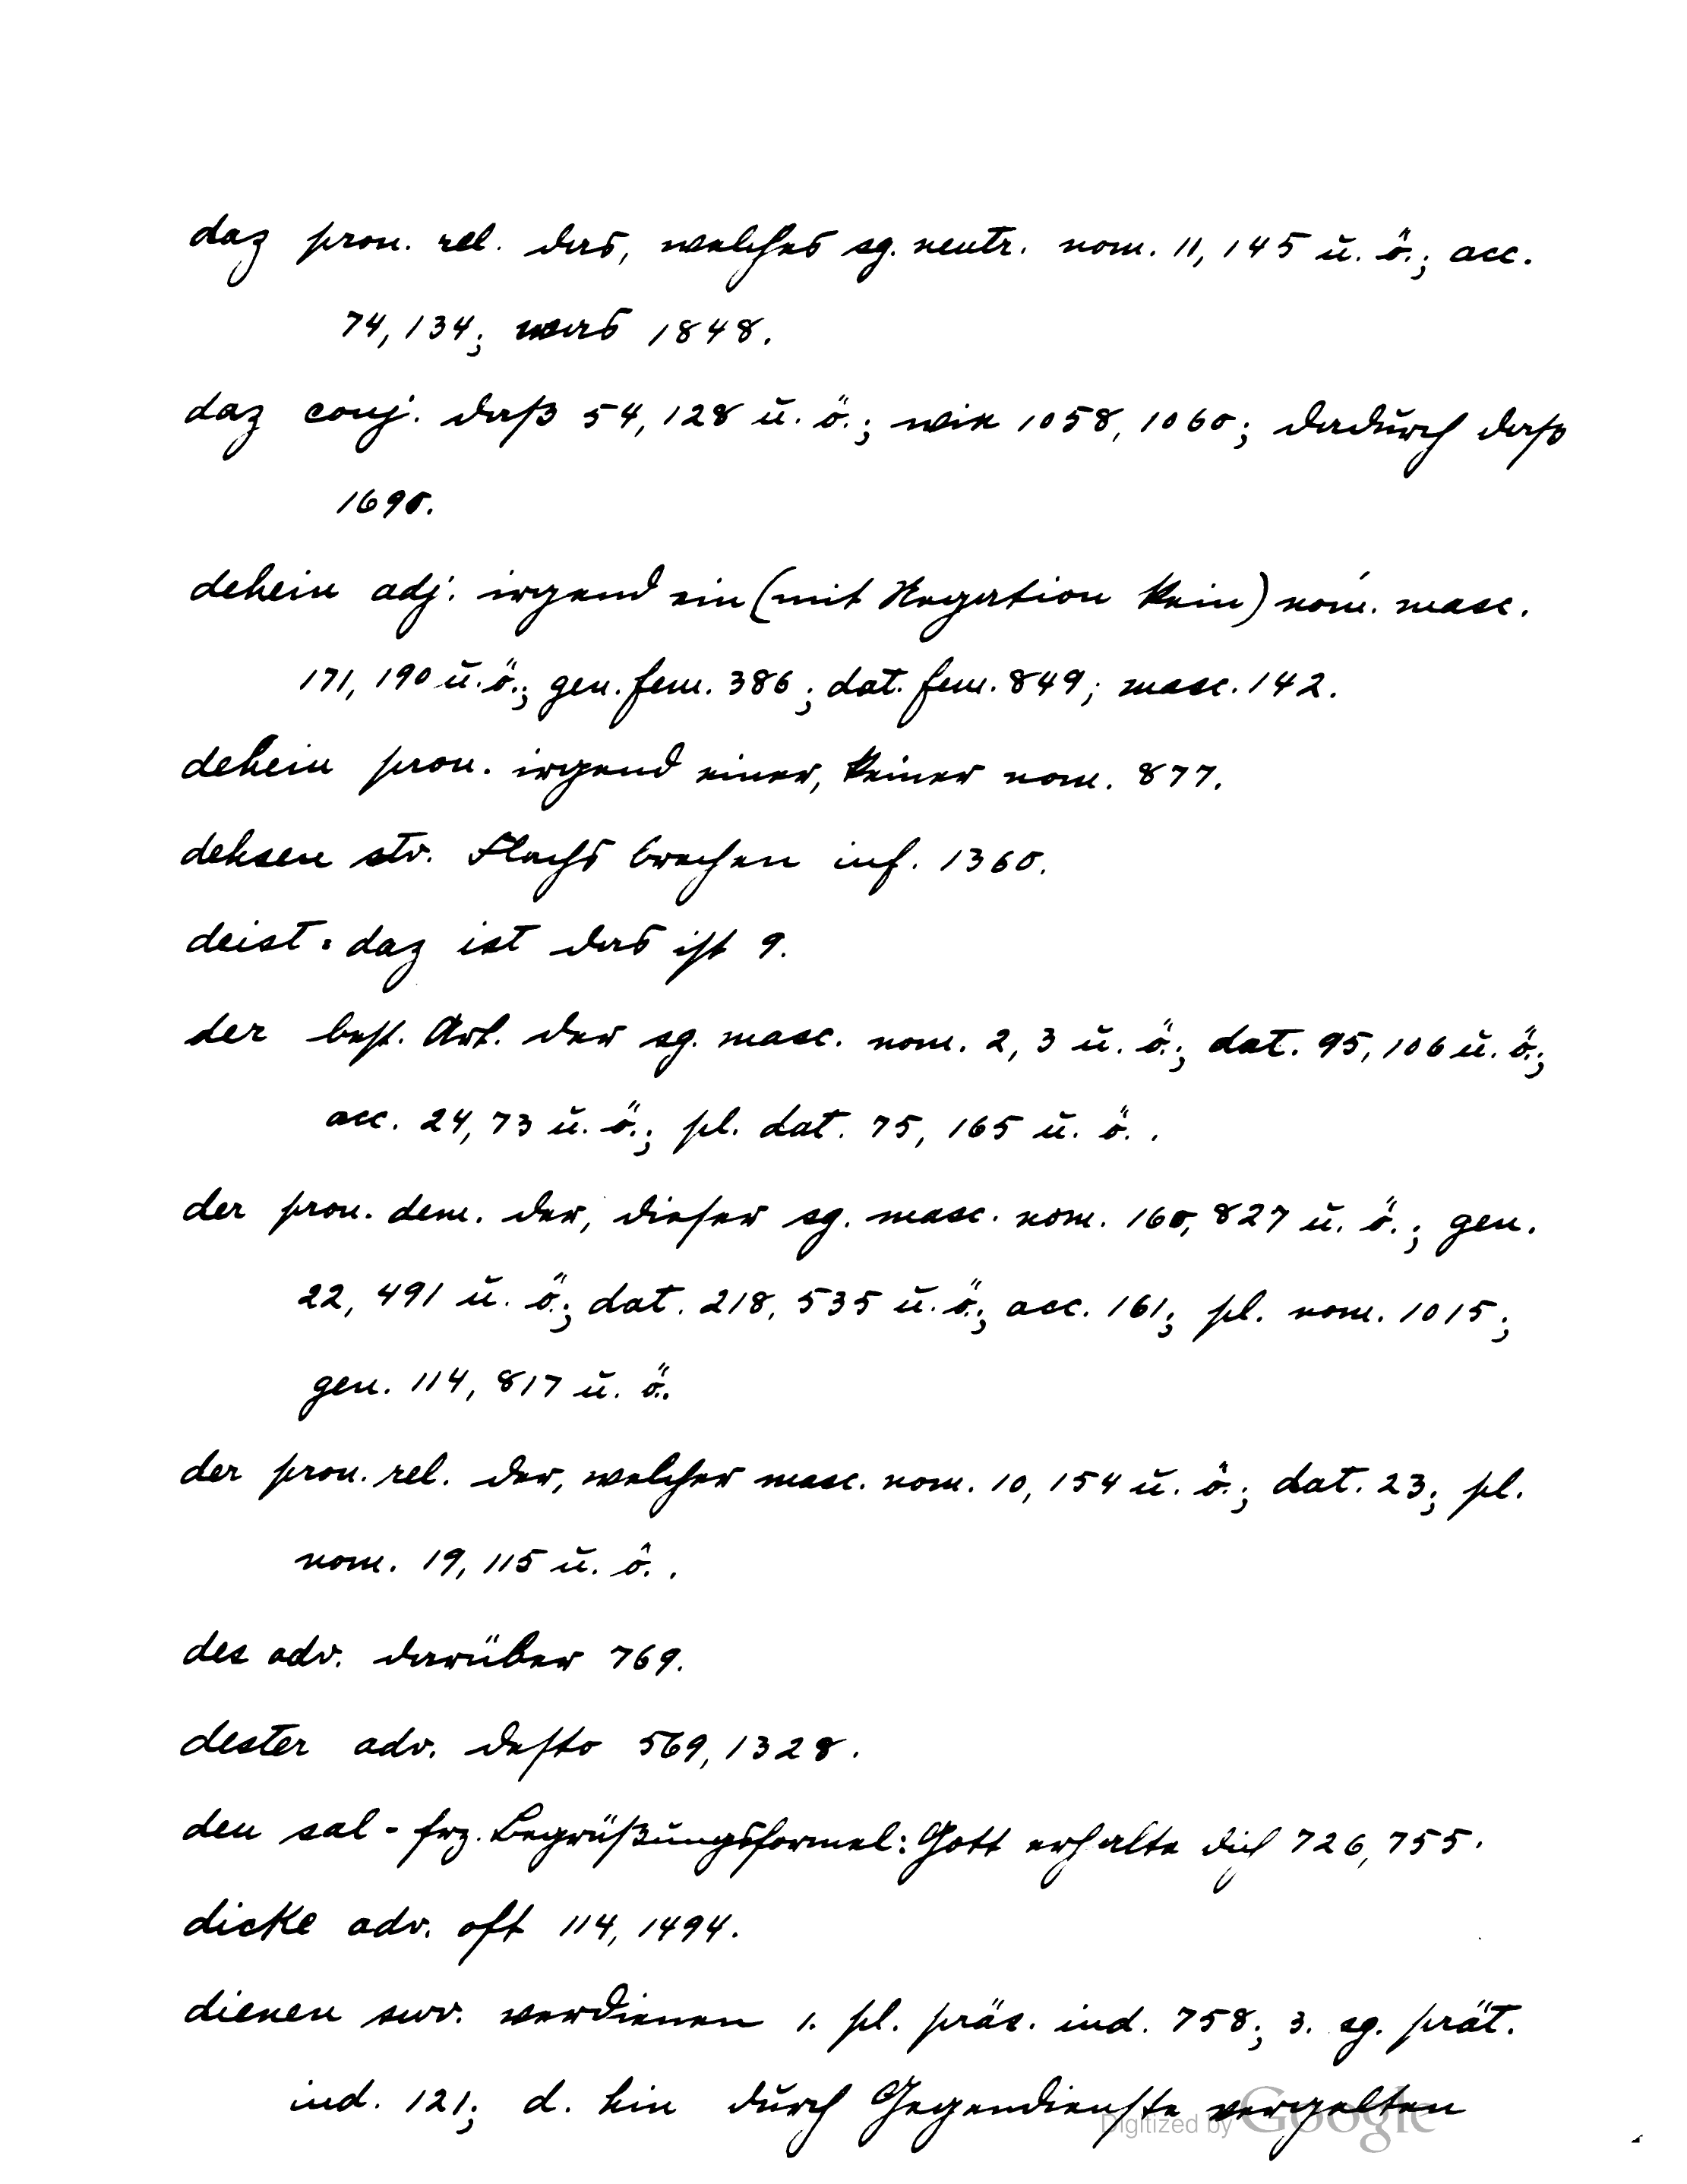 daz pron. rel. das, welches sg. neutr. nom. 11, 145 u. ö.; acc.
74, 134; was 1848.
daz conj. daß 54, 128 u. ö.; wie 1058, 1060; dadurch daß
1690.
dehein adj. irgend ein (mit Negation kein) nom. masc.
171, 190 u. ö.; gen. fem. 386; dat. fem. 849; masc. 142.
dehein pron. irgend einer, keiner nom. 877.
dehsen stv. Flachs brechen inf. 1360.
deist = daz ist das ist 9.
der best. Art. der sg. masc. nom. 2, 3 u. ö.; dat. 95, 106 u. ö.;
acc. 24, 73 u. ö.; pl. dat. 75, 165 u. ö..
der pron. dem. der, dieser sg. masc. nom. 160, 827 u. ö.; gen.
22, 491 u. ö.; dat. 218, 535 u. ö.; acc. 161; pl. nom. 1015;
gen. 114, 817 u. ö.
der pron. rel. der, welcher masc. nom. 10, 154 u. ö.; dat. 23; pl.
nom. 19, 115 u. ö..
des adv. darüber 769.
dester adv. desto 569, 1328.
deu sal - frz. Begrüßungsformel: Gott erhalte dich 726, 755.
dicke adv. oft 114, 1494.
dienen swv. verdienen 1. pl. präs. ind. 758; 3. sg. prät.
ind. 121; d. hin durch Gegendienste vergelten
Digitized by Google